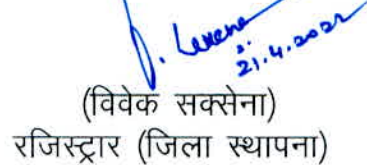 21.4.2022
(विवेक सक्सेना)
रजिस्ट्रार (जिला स्थापना)